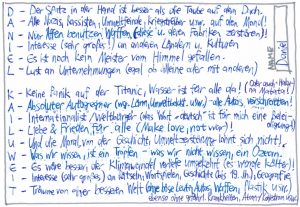 D Der Spatz in der Hand ist besser als die Taube auf dem Dach.
A Alle Nazis, Rassisten, Umweltfeinde, Kriegstreiber usw. auf den Mond!
N Nur Affen benutzen Waffen (Böse u. deren Fabriken zerstören)!
I Interesse (sehr großes!) an anderen Ländern u. Kulturen
E Es ist noch kein Meister vom Himmel gefallen.
L Lust an Unternehmungen (egal ob alleine oder mit anderen)
NAME
Daniel
K Keine Panik auf der Titanic, Wasser ist für alle da!
A Absoluter Autogegner (weg. Lärm, Umweltschutz usw.) - alle Autos verschrotten!
I Internationalist / Weltbürger (das Wort "deutsch" ist für mich eine
L Liebe & Frieden für alle (Make love, not war)!
U Und die Moral von der Geschicht, Umweltzerstörung lohnt sich nicht!
W Was wir wissen, ist ein Tropfen - was wir nicht wissen, ein Ozean.
E Es wäre besser, der Klimawandel verliefe umgekehrt (es würde kälter)!
I Interesse (sehr großes) an Rätseln, Wortspielen, Geschichte (bes. 19. Jh.), Geografie
T Träume von einer besseren Welt (ohne böse Leute, Autos, Waffen, Plastik usw.
ebenso ohne Krankheiten, Atom